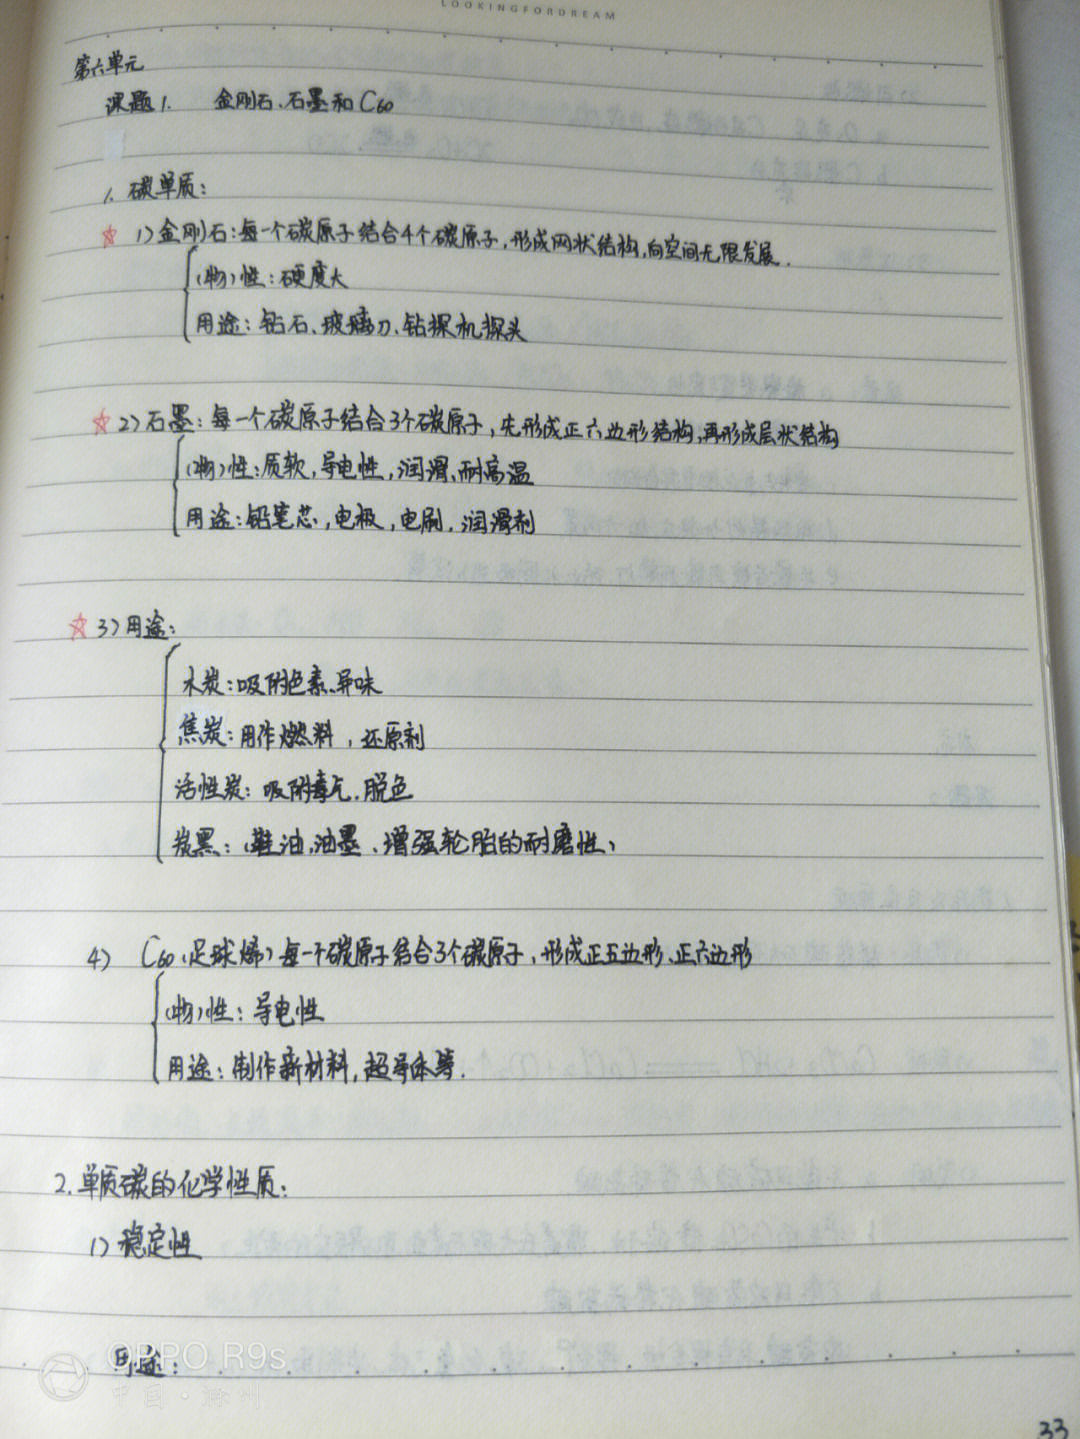 LOOKINGFORDREAM
第六单元
课题1. 金刚石、石墨和C60
1. 碳单质:
☆ 1)金刚石:每一个碳原子结合4个碳原子,形成网状结构,向空间无限发展.
(物)性:硬度大
用途:钻石、玻璃刀、钻探机探头
☆ 2)石墨:每一个碳原子结合3个碳原子,先形成正六边形结构,再形成层状结构
(物)性:质软,导电性,润滑、耐高温
用途:铅笔芯,电极,电刷,润滑剂
☆ 3)用途:
木炭:吸附色素、异味
焦炭:用作燃料,还原剂
活性炭:吸附毒气、脱色
炭黑:(鞋油,油墨、增强轮胎的耐磨性)
4) C60(足球烯)每一个碳原子结合3个碳原子,形成正五边形、正六边形
(物)性:导电性
用途:制作新材料,超导体等.
2.单质碳的化学性质:
1)稳定性
用途:
OPPO R9s
中国·滁州
33